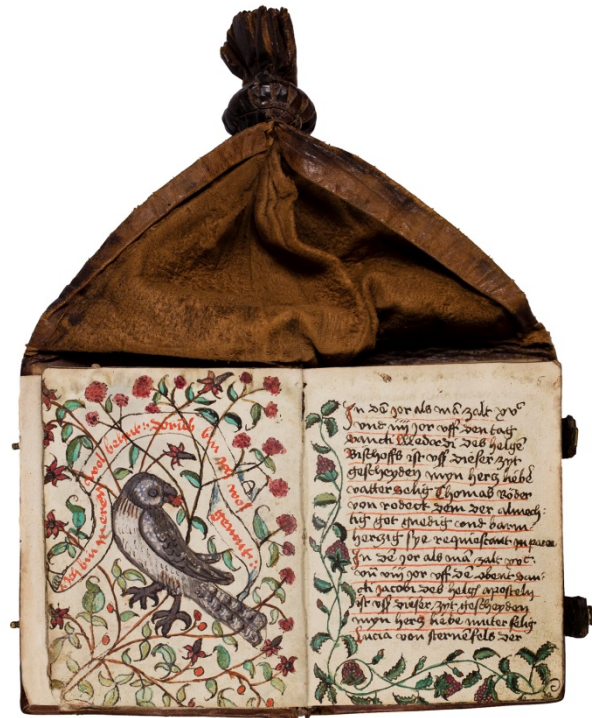 Ich bin meren wol bekant: Donich bin ich wol genant:
In dē jor als mā zalt xvᶜ
vnd iiij jor vff den tag
sancti Mederdi des helgē
Bischoffs ist vff dieser zyt
gescheyden myn herz liebē
vatter selig Thomas Röder
von rodeck dem der almech:
tig got gnedig vnd barm
herzig sye requiescant in pace
In dē jor als mā zalt xvᶜ
vn̄ viij jor vff dē obent san
cti Jacobi des helgē apostelß
ist vff dieser zyt gescheyden
myn herz liebe muter selig
Lucia von sternefels der